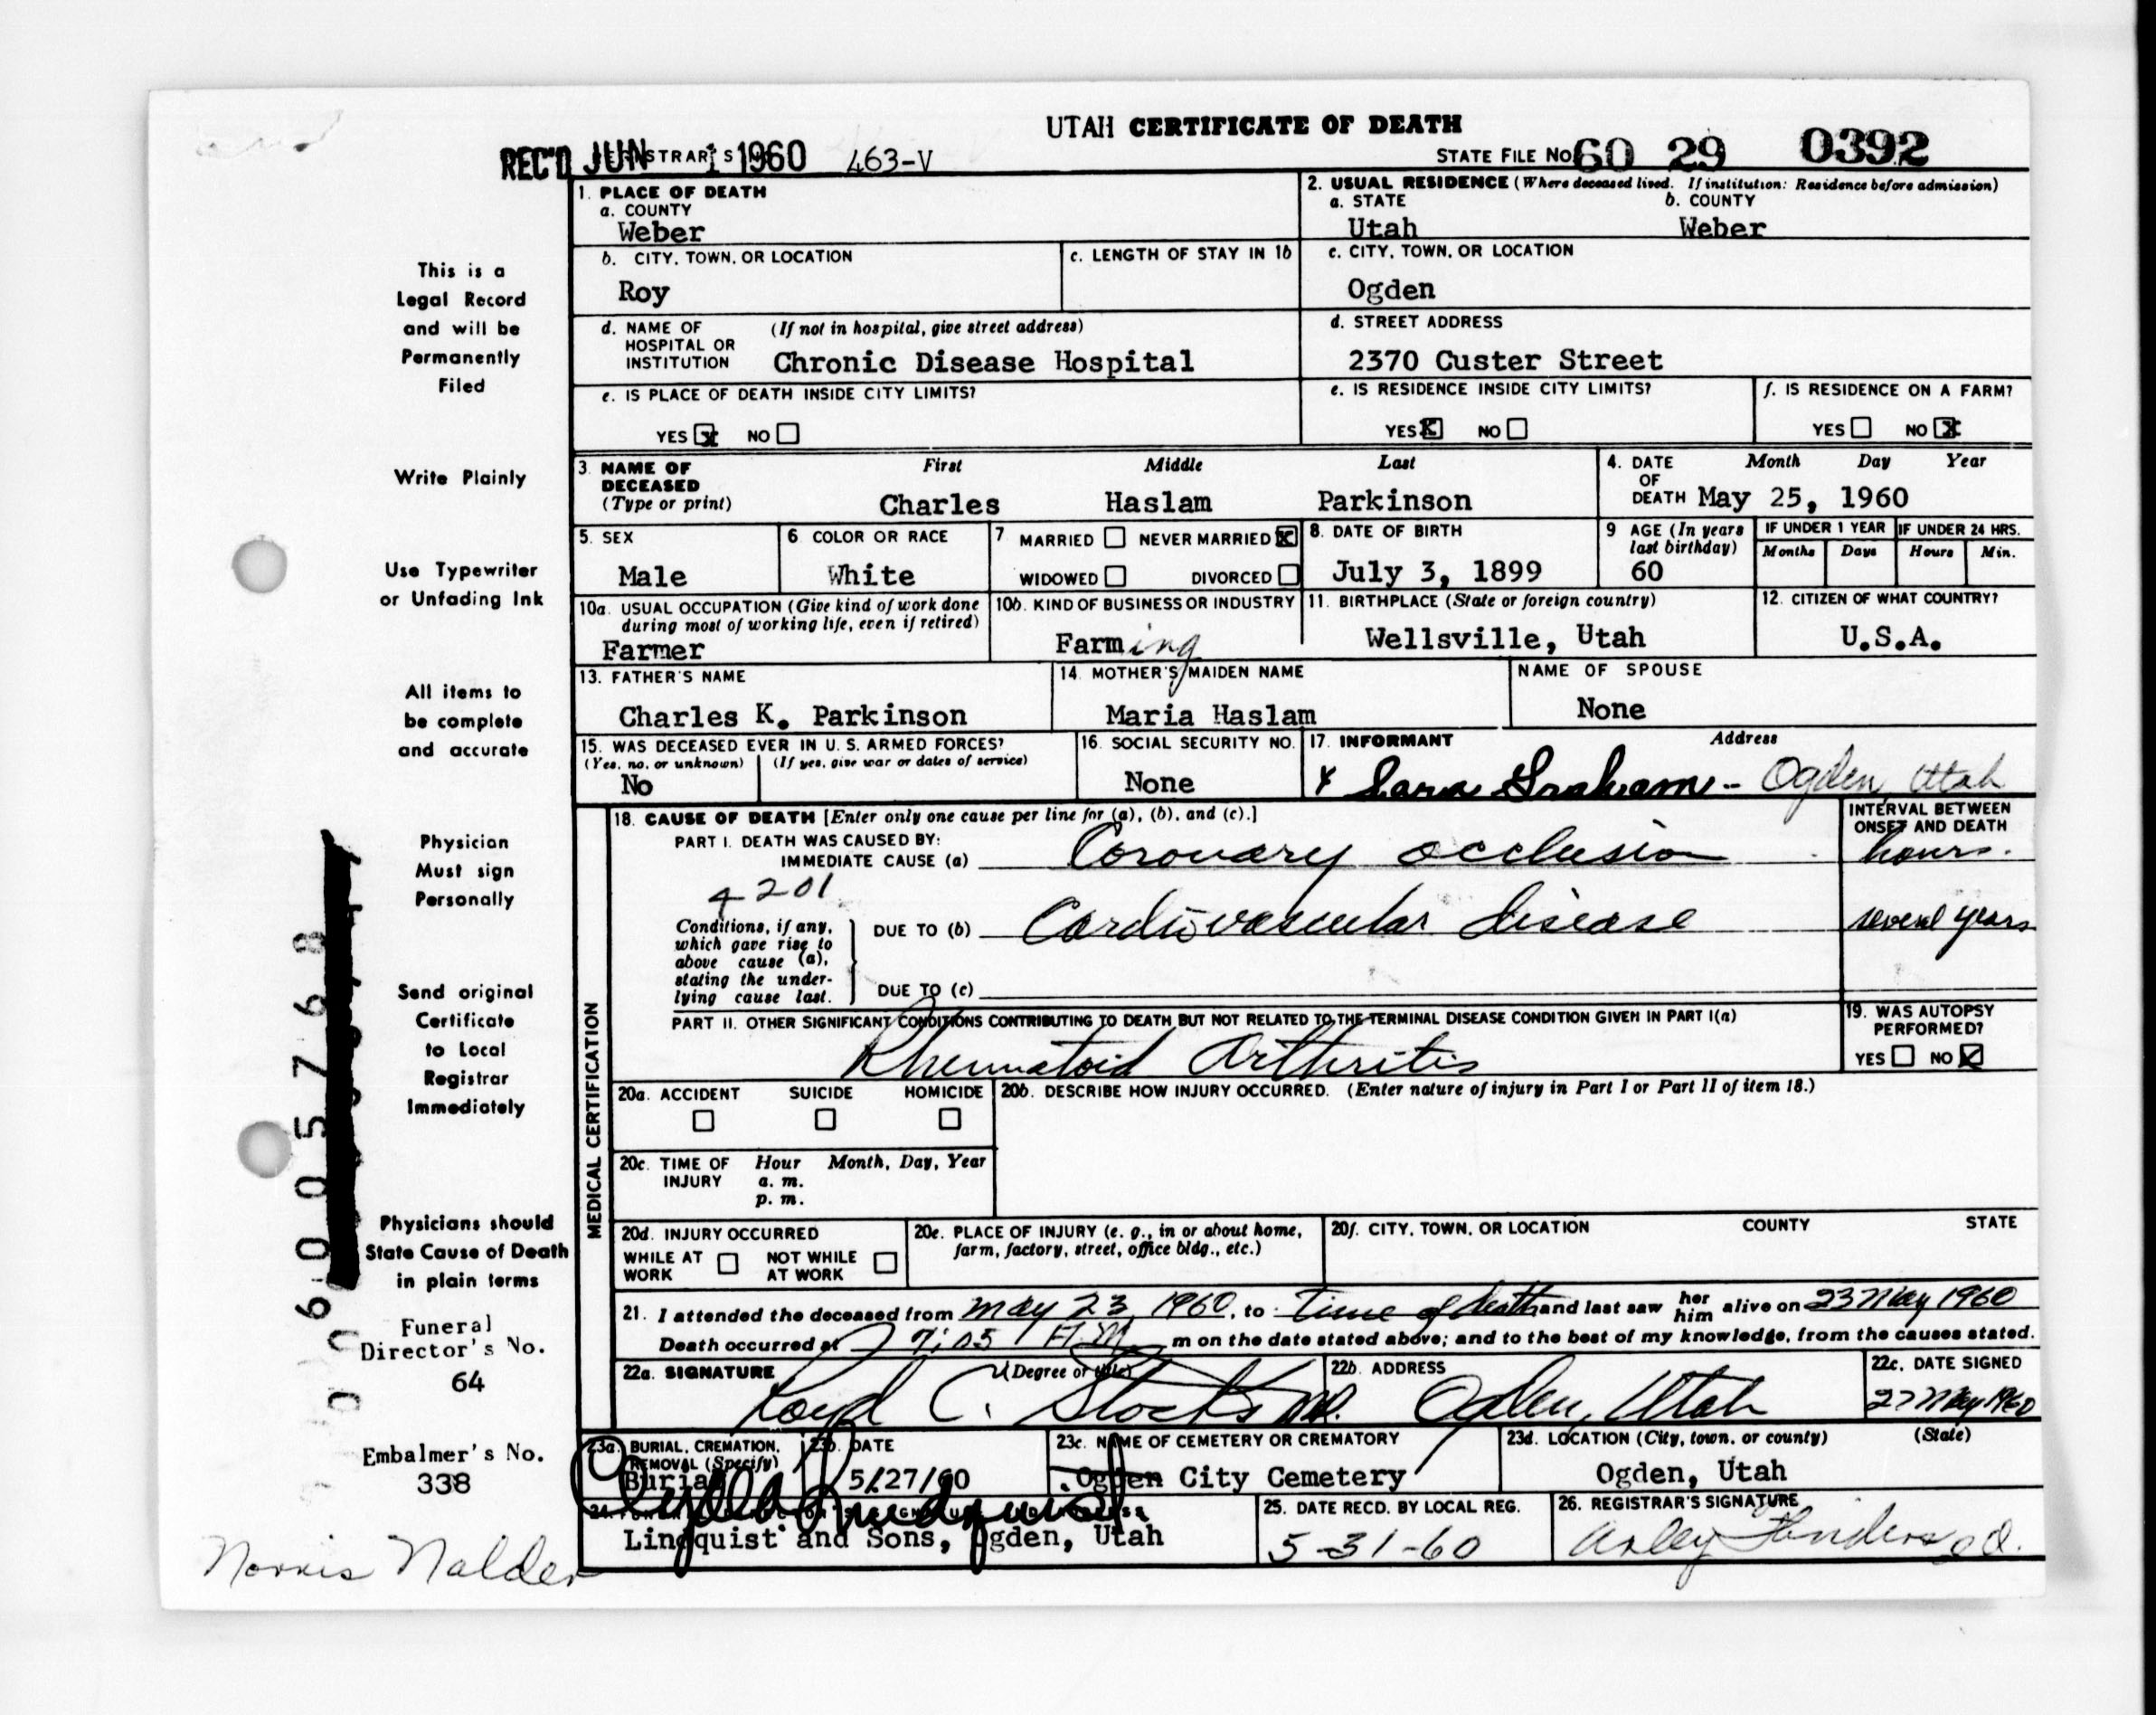 UTAH CERTIFICATE OF DEATH
REC'D JUN 1 1960 463-V
STATE FILE No. 60 29 0392
1. PLACE OF DEATH
a. COUNTY
Weber
2. USUAL RESIDENCE (Where deceased lived. If institution: Residence before admission)
a. STATE b. COUNTY
Utah Weber
b. CITY, TOWN, OR LOCATION
Roy
c. LENGTH OF STAY IN 1b
c. CITY, TOWN, OR LOCATION
Ogden
d. NAME OF (If not in hospital, give street address)
HOSPITAL OR
INSTITUTION Chronic Disease Hospital
d. STREET ADDRESS
2370 Custer Street
e. IS PLACE OF DEATH INSIDE CITY LIMITS?
YES x NO
e. IS RESIDENCE INSIDE CITY LIMITS?
YES X NO
f. IS RESIDENCE ON A FARM?
YES NO X
3. NAME OF DECEASED
(Type or print)
First Middle Last
Charles Haslam Parkinson
4. DATE OF DEATH
Month Day Year
May 25, 1960
5. SEX
Male
6. COLOR OR RACE
White
7. MARRIED NEVER MARRIED X
WIDOWED DIVORCED
8. DATE OF BIRTH
July 3, 1899
9. AGE (In years last birthday)
60
IF UNDER 1 YEAR IF UNDER 24 HRS.
Months Days Hours Min.
10a. USUAL OCCUPATION (Give kind of work done
during most of working life, even if retired)
Farmer
10b. KIND OF BUSINESS OR INDUSTRY
Farming
11. BIRTHPLACE (State or foreign country)
Wellsville, Utah
12. CITIZEN OF WHAT COUNTRY?
U.S.A.
13. FATHER'S NAME
Charles K. Parkinson
14. MOTHER'S MAIDEN NAME
Maria Haslam
NAME OF SPOUSE
None
15. WAS DECEASED EVER IN U. S. ARMED FORCES?
(Yes, no, or unknown) (If yes, give war or dates of service)
No
16. SOCIAL SECURITY NO.
None
17. INFORMANT Address
x Sara Graham - Ogden, Utah
MEDICAL CERTIFICATION
18. CAUSE OF DEATH [Enter only one cause per line for (a), (b), and (c).]
INTERVAL BETWEEN
ONSET AND DEATH
PART I. DEATH WAS CAUSED BY:
IMMEDIATE CAUSE (a) Coronary occlusion hours.
4201
Conditions, if any,
which gave rise to
above cause (a),
stating the under-
lying cause last.
DUE TO (b) Cardiovascular disease several years
DUE TO (c)
PART II. OTHER SIGNIFICANT CONDITIONS CONTRIBUTING TO DEATH BUT NOT RELATED TO THE TERMINAL DISEASE CONDITION GIVEN IN PART I(a)
Rheumatoid Arthritis
19. WAS AUTOPSY
PERFORMED?
YES NO X
20a. ACCIDENT SUICIDE HOMICIDE
20b. DESCRIBE HOW INJURY OCCURRED. (Enter nature of injury in Part I or Part II of item 18.)
20c. TIME OF INJURY
Hour Month, Day, Year
a. m.
p. m.
20d. INJURY OCCURRED
WHILE AT WORK NOT WHILE AT WORK
20e. PLACE OF INJURY (e. g., in or about home,
farm, factory, street, office bldg., etc.)
20f. CITY, TOWN, OR LOCATION COUNTY STATE
21. I attended the deceased from May 23, 1960, to Time of death and last saw her him alive on 23 May 1960
Death occurred at 7:05 m on the date stated above; and to the best of my knowledge, from the causes stated.
22a. SIGNATURE (Degree or title)
Loyd C. Stocks M.D.
22b. ADDRESS
Ogden, Utah
22c. DATE SIGNED
27 May 1960
23a. BURIAL, CREMATION,
REMOVAL (Specify)
Burial
23b. DATE
5/27/60
23c. NAME OF CEMETERY OR CREMATORY
Ogden City Cemetery
23d. LOCATION (City, town, or county) (State)
Ogden, Utah
24.
Lindquist and Sons, Ogden, Utah
25. DATE RECD. BY LOCAL REG.
5-31-60
26. REGISTRAR'S SIGNATURE
This is a
Legal Record
and will be
Permanently
Filed
Write Plainly
Use Typewriter
or Unfading Ink
All items to
be complete
and accurate
Physician
Must sign
Personally
Send original
Certificate
to Local
Registrar
Immediately
Physicians should
State Cause of Death
in plain terms
Funeral
Director's No.
64
Embalmer's No.
338
Norris Nalder
6005768